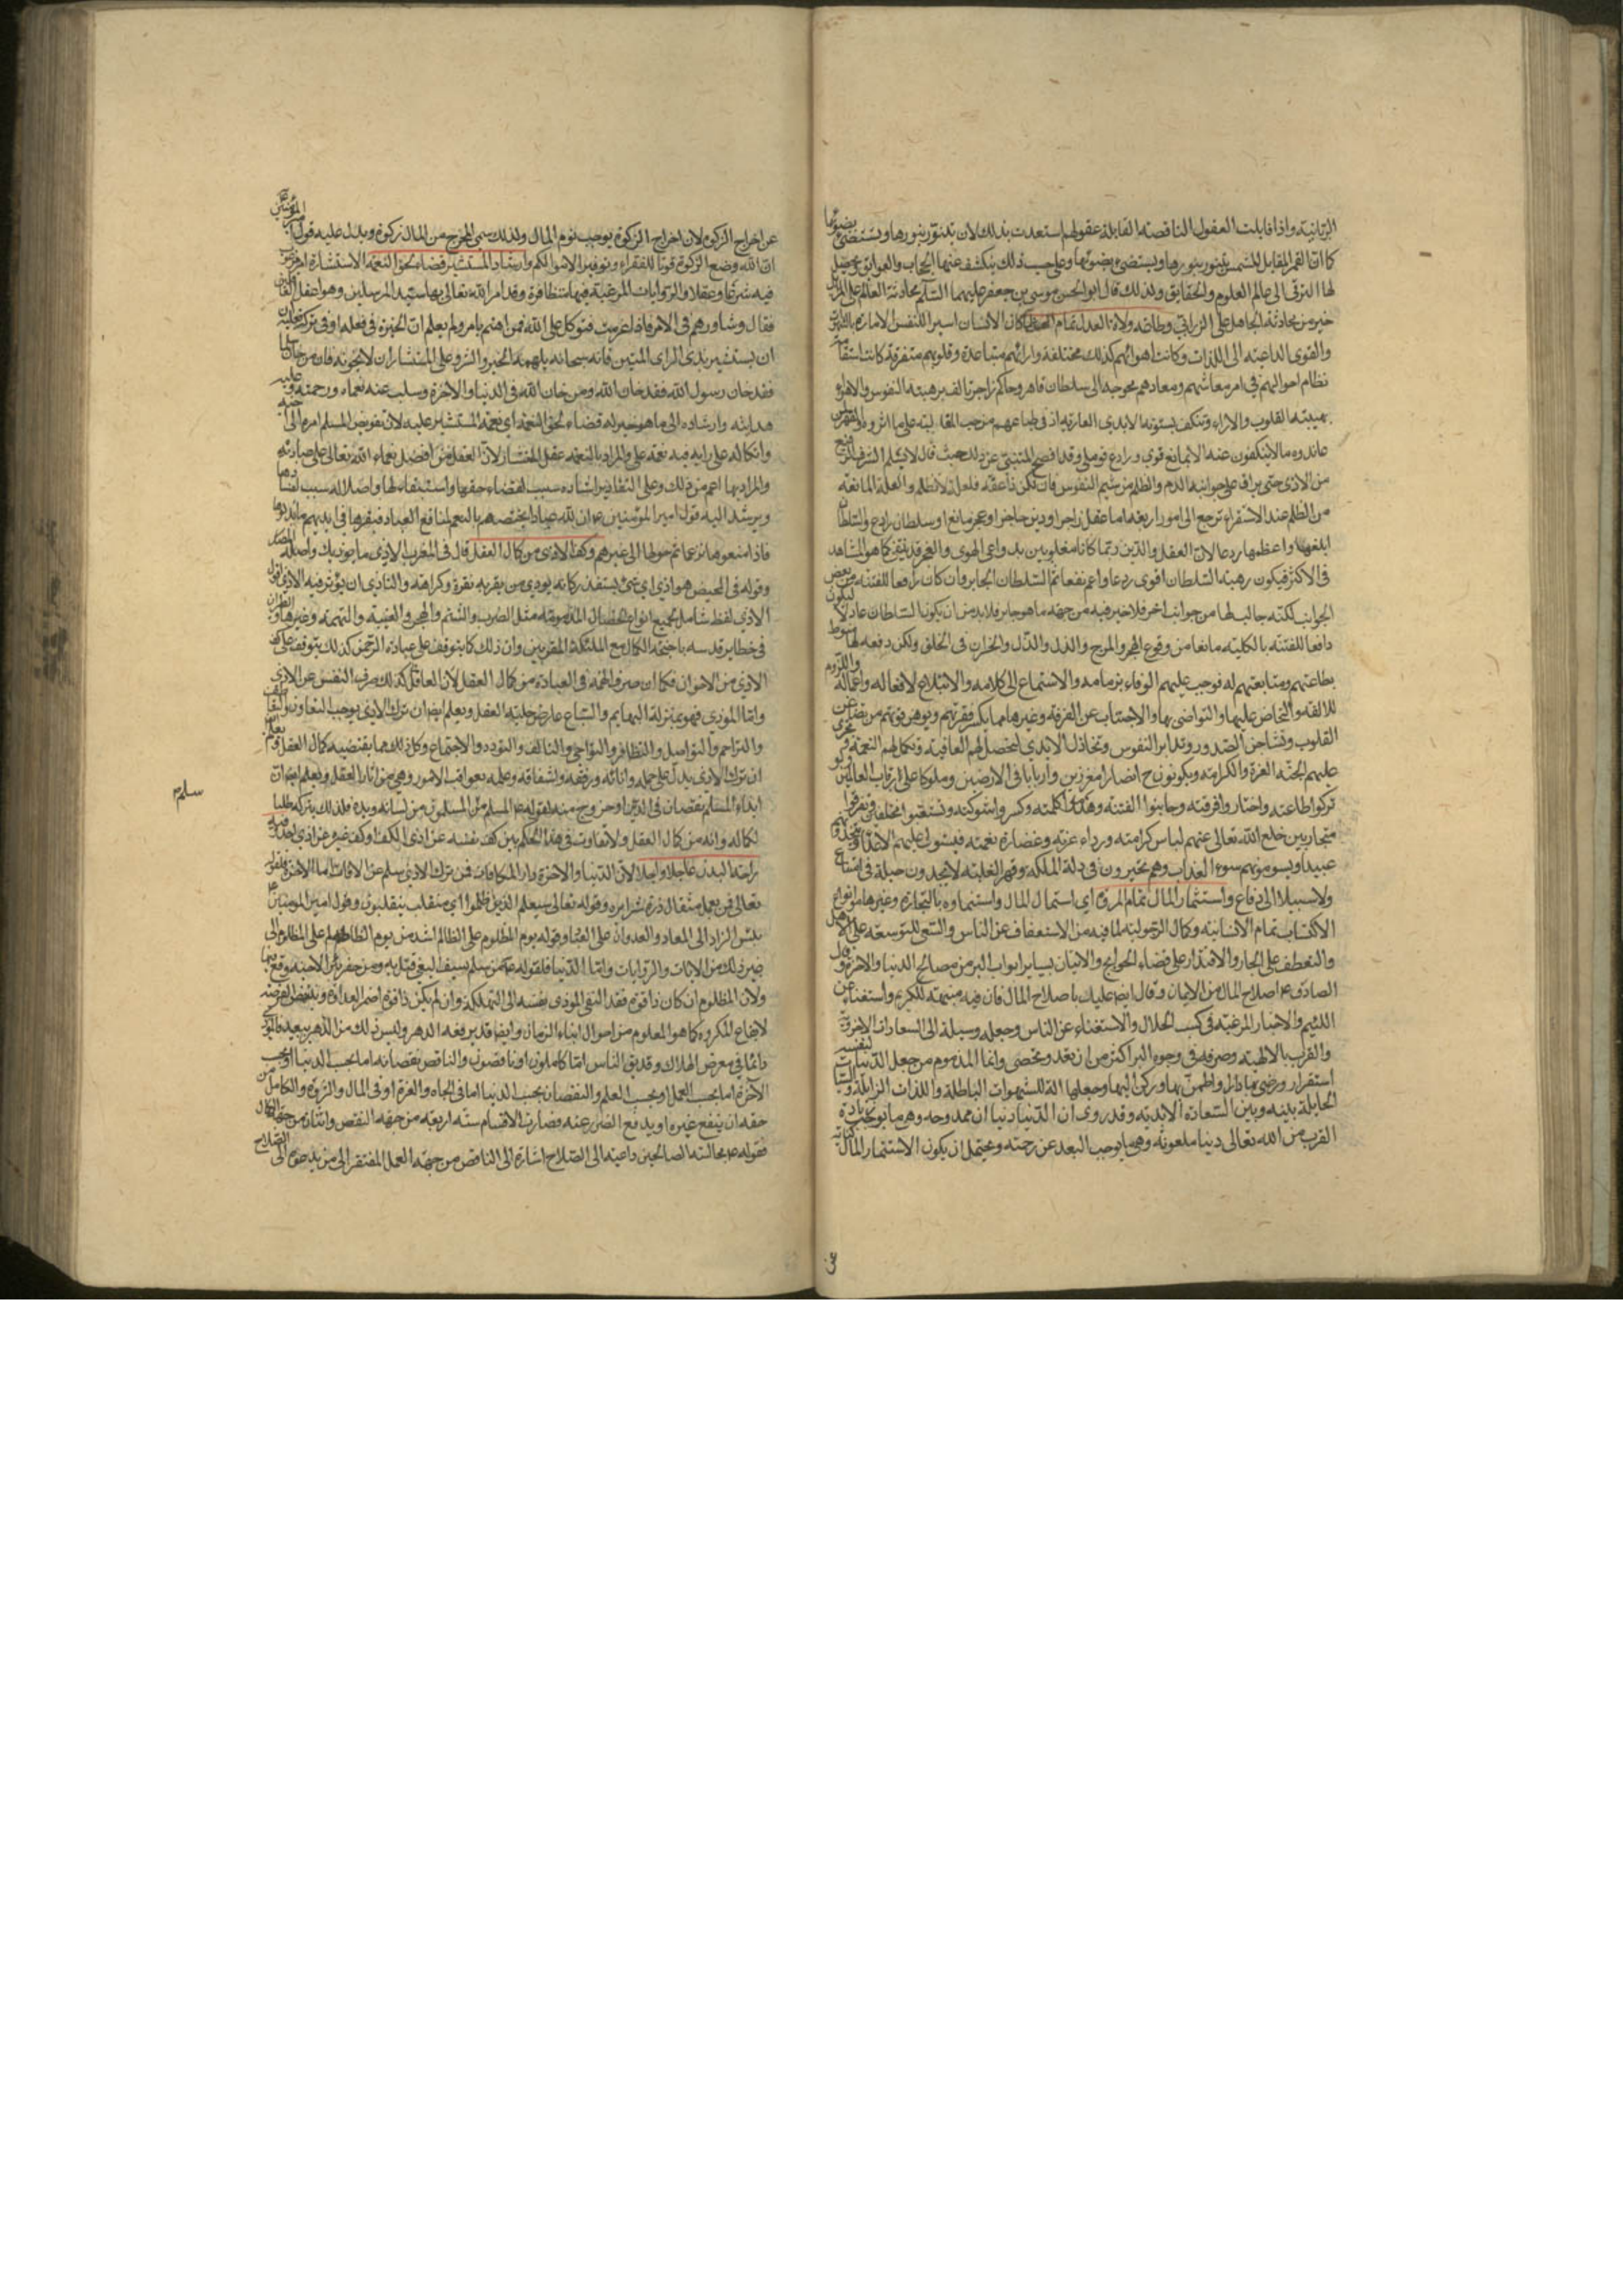 الربانية واذا قابلت العقول الناقصة القابلة عقولهم استعدت بذلك لان يتنور بنورها ويستضئ بضوئها
كما ان القمر المقابل للشمس يتنور بنورها ويستضئ بضوئها وعلى حسب ذلك ينكشف عنها الحجاب والعوائق ويحصل
لها الترقي الى عالم العلوم والحقايق ولذلك قال ابو الحسن موسى بن جعفر عليهما السلم محادثة العالم على المزابل
خير من محادثة الجاهل على الزرابي وطاعة ولاة العدل تمام العز لما كان الانسان اسيرا للنفس الامارة
والقوى الداعية الى اللذات وكانت اهوائهم كذلك مختلفة وارائهم متباعدة وقلوبهم متفرقة كانت استقامة
نظام احوالهم في امر معاشهم ومعادهم محوجة الى سلطان قاهر وحاكم زاجر تالف برهبته النفوس والاهواء
بهيبته القلوب والاراء وتنكف بسطوته الايدي العادية اذ في طباعهم من حب المغالبة على ما اثروه والقهر لمن
عاندوه ما لا ينكفون عنه الا بمانع قوي ورادع قوي وقد افصح المتنبي عن ذلك حيث قال لا يسلم الشرف الرفيع
من الاذى حتى يراق على جوانبه الدم والظلم من شيم النفوس فان تكن ذا عفة فلعلة لا تظلم والعلة المانعة
من الظلم عند الاستقراء ترجع الى امور اربعة اما عقل زاجر او دين حاجز او عجز مانع او سلطان رادع والسلطان
ابلغها واعظمها ردعا لان العقل والدين ربما كانا مغلوبين بدواعي الهوى والعجز قد ينفك كما هو المشاهد
في الاكثر فيكون رهبة السلطان اقوى ردعا واعم نفعا ثم السلطان الجابر وان كان رافعا للفتنة من بعض
الجوانب لكنه جالب لها من جوانب اخر فلا خير فيه من جهة ما هو جابر فلا بد من ان يكون السلطان عادلا ليكون
دافعا للفتنة بالكلية مانعا من وقوع الهرج والمرج والذل والخذلان في الخلق ولكن دفعه لها مشروط
بطاعتهم ومتابعتهم له فوجب عليهم الوفاء بزمامه والاستماع الى كلامه والاتباع لافعاله واعماله واللزوم
للالفة والتحاض عليها والتواصي بها والاجتناب عن الفرقة وغيرها مما يكسر فقرتهم ويوهن قوتهم من تضاغن
القلوب وتشاحن الصدور وتدابر النفوس وتخاذل الايدي لتحصل لهم العافية وتكمل لهم النعمة وتجري
عليهم الجنة العزة والكرامة ويكونون ح انصارا مغرزين واربابا في الارضين وملوكا على رقاب العالمين ولو
تركوا طاعته واختاروا فرقته وجانبوا الفتنة وهتكوا كلمته وكسروا شوكته وتشعبوا مختلفين وتفرقوا
متحاربين خلع الله تعالى عنهم لباس كرامته ورداء عزته وغضارة نعمته فيستولي عليهم الاعداء ويتخذونهم
عبيدا ويسومونهم سوء العذاب وهم متحيرون في ذلة الملكة وقهر الغلبة لا يجدون حيلة في امتناع
ولا سبيلا الى دفاع واستثمار المال تمام المروة اي استعمال المال واستنماوه بالتجارة وغيرها من انواع
الاكتساب تمام الانسانية وكمال الرجولية لما فيه من الاستعفاف عن الناس والسعي للتوسعة على الاهل
والتعطف على الجار والاقتدار على قضاء الحوائج والاتيان بساير ابواب البر من مصالح الدنيا والاخرة وقول
الصادق ع اصلاح المال من الايمان وقال ايضا عليك باصلاح المال فان فيه منبهة للكريم واستغناء عن
اللئيم والاخبار المرغبة في كسب الحلال والاستغناء عن الناس وجعله وسيلة الى السعادات الاخروية
والقرب بالالهية وصرفه في وجوه البر اكثر من ان تعد وتحصى وانما المذموم من جعل الدنيا لنفسه دار
استقرار ورضي بها دارا واطمئن بها وركن اليها وجعلها الة للشهوات الباطلة واللذات الزايلة والسيئات
الحايلة بينه وبين السعادة الابدية وقد روى ان الدنيا دنيا ان ممدوحه وهي ما يوجب زيادة
القرب من الله تعالى ودنيا ملعونة وهي ما يوجب البعد عن رحمته ويحتمل ان يكون الاستثمار المال كناية
عن
عن اخراج الزكوة لان اخراج الزكوة يوجب نمو المال ولذلك سمي المخرج من المال زكوة ويدل عليه قول امير المؤمنين ع
ان الله وضع الزكوة قوتا للفقراء وتوفيرا لاموالكم وارشاد المستشير قضاء لحق النعمة الاستشارة امر مرغوب
فيه شرعا وعقلا والروايات المرغبة فيها متظافرة وقد امر الله تعالى بها سيد المرسلين وهو اعقل العاقلين
فقال وشاورهم في الامر فاذا عزمت فتوكل على الله فمن اهتم بامر ولم يعلم ان الخيرة في فعله او في تركه فعليه
ان يستشير بذي الراى المتين فانه سبحانه يلهمه الخير والشر وعلى المستشار ان لا يخونه فان من خان مسلما
فقد خان رسول الله فقد خان الله ومن خان الله في الدنيا والاخرة وسلب عنه نعماءه ورحمته وعليه
هدايته وارشاده الى ما هو خير له قضاء لحق النعمة اي نعمة المستشير عليه لان تفويض المسلم امره الى اخيه
واتكاله على رايه فيه نعمة على والمراد بالنعمة عقل المستشار لان العقل من افضل نعماء الله تعالى على عباده
والمراد بها اعم من ذلك وعلى التقادير ارشاده سبب لقضاء حقوقها واستبقاءها واضلاله سبب لفسادها
ويرشد اليه قول امير المؤمنين ع ان لله عبادا يختصهم بالنعم لمنافع العباد فيقرها في ايديهم ما بذلوها
فاذا منعوها نزعها ثم حولها الى غيرهم وكف الاذى من كمال العقل قال في المغرب الاذى ما يوذيك واصله المصدر
وقوله في المحيض هو اذى اي شئ يستقذر كانه يوذي من يقربه نفرة وكراهة والتاذي ان يؤثر فيه الاذى اقول
الاذى لفظ شامل لجميع انواع الخصال المذمومة مثل الضرب والشتم والهجو والغيبة والتهمة وغيرها
في خطاير قدسه باجنحة الكمال مع الملئكة المقربين وان ذلك كما يتوقف على عبادة الرحمن كذلك يتوقف على كف
الاذى من الاخوان فكما ان صرف الهمة في العبادة من كمال العقل لان العاقل كذلك صرف النفس عن الاذى
واما الموذي فهو بمنزلة البهايم والسباع عار من حلية العقل ويعلم ايضا ان ترك الاذى يوجب التعاون والتعاطف
والتراحم والتواصل والتظافر والتواخي والتالف والتودد والاجتماع وكل ذلك مما يقتضيه كمال العقل ويعلم
ان ترك الاذى يدل على حلمه واناته ورفقه واشفاقه وعلمه بعواقب الامور وهي من اثار العقل ويعلم ايضا ان
ايذاء المسلم نقصان في الدين او خروج منه لقوله ع المسلم من سلم المسلمون من لسانه ويده فلذلك يتركه طلبا
سلم
لكماله وانه من كمال العقل ولا تفاوت في هذا الحكم بين كف نفسه عن اذى الكف وكف غيره عن اذى احد وفيه
راحة البدن عاجلا واجلا لان الدنيا والاخرة دار المكافات فمن ترك الاذى سلم عن الافات اما الاخرة فلقوله
تعالى فمن يعمل مثقال ذرة شرا يره وقوله تعالى سيعلم الذين ظلموا اي منقلب ينقلبون وقول امير المومنين ع
بئس الزاد الى المعاد والعدوان على العباد وقوله يوم المظلوم على الظالم اشد من يوم الظالم على المظلوم الى
غير ذلك من الايات والروايات واما الدنيا فلقوله ع من سل سيف البغي قتل به ومن حفر بئرا لاخيه وقع فيها
ولان المظلوم ان كان ذا قوة فقد القى الموذي نفسه الى التهلكة وان لم يكن ذا قوة اضمر العداوة وينتظر الفرصة
لايقاع المكروه كما هو المعلوم من احوال ابناء الزمان وايضا قد يرفعه الدهر وليس ذلك من الدهر ببعيد فالموذي
دائما في معرض الهلاك وقد يق الناس اما كاملون او ناقصون والناقص نقصانه اما بحسب الدنيا او بحسب
الاخرة اما بحسب العمل او بحسب العلم والنقصان بحسب الدنيا اما في الجاه والعزة او في المال والثروة والكامل من
حقه ان ينفع غيره او يدفع الضر عنه فصارت الاقسام ستة اربعة من جهة النقص واثنان من جهة الكمال
فقوله ع مجالسة الصالحين داعية الى الصلاح اشارة الى الناقص من جهة العمل المفتقر الى من يدعوه الى الصلاح